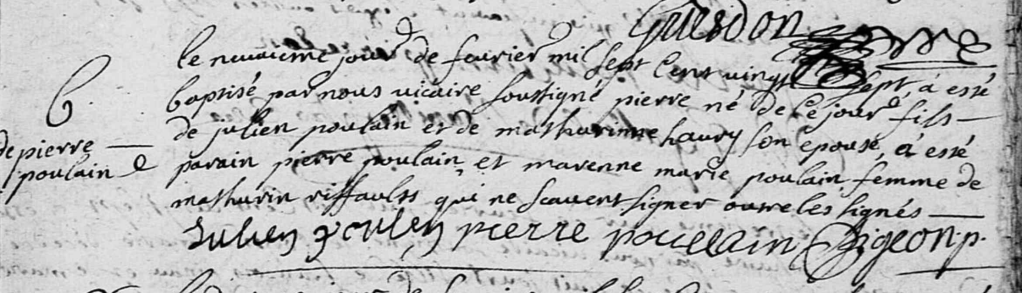 Guesdon
B
de pierre
poulain
le neuvieme jour de fevrier mil sept cent vingt sept, a esté
baptisé par nous vicaire soussigné pierre né de ce jour fils
de julien poulain et de mathurinne haury son epouse, a esté
parain pierre poulain et marenne marie poulain femme de
mathurin riffault qui ne scavent signer outre les signés
Julien poulen pierre poullain Pigeon p.